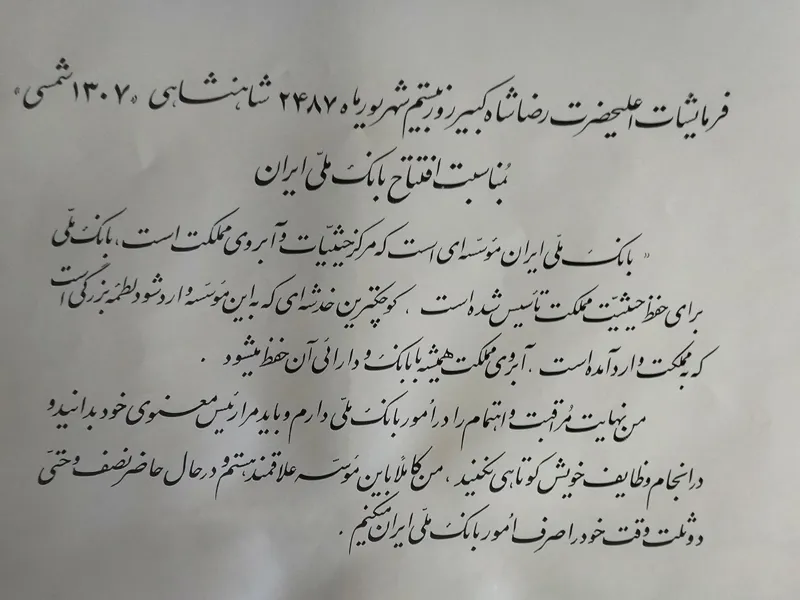 فرمایشات اعلیحضرت رضا شاه کبیر روز بیستم شهریور ماه ۲۴۸۷ شاهنشاهی «۱۳۰۷ شمسی»
بمناسبت افتتاح بانک ملّی ایران
« بانک ملّی ایران مؤسّسه ای است که مرکز حیثیّات و آبروی مملکت است، بانک ملّی
برای حفظ حیثیّت مملکت تأسیس شده است ، کوچکترین خدشه ای که به این مؤسّسه وارد شود لطمه بزرگی است
که بمملکت وارد آمده است . آبروی مملکت همیشه با بانک و دارائی آن حفظ میشود .
من نهایت مُراقبت و اهتمام را در اُمور بانک ملّی دارم و باید مرا رئیس معنوی خود بدانید و
در انجام وظایف خویش کوتاهی نکنید ، من کاملاً باین مؤسّسه علاقمند هستم و در حال حاضر نصف و حتّی
دو ثلث وقت خود را صرف اُمور بانک ملّی ایران میکنم .